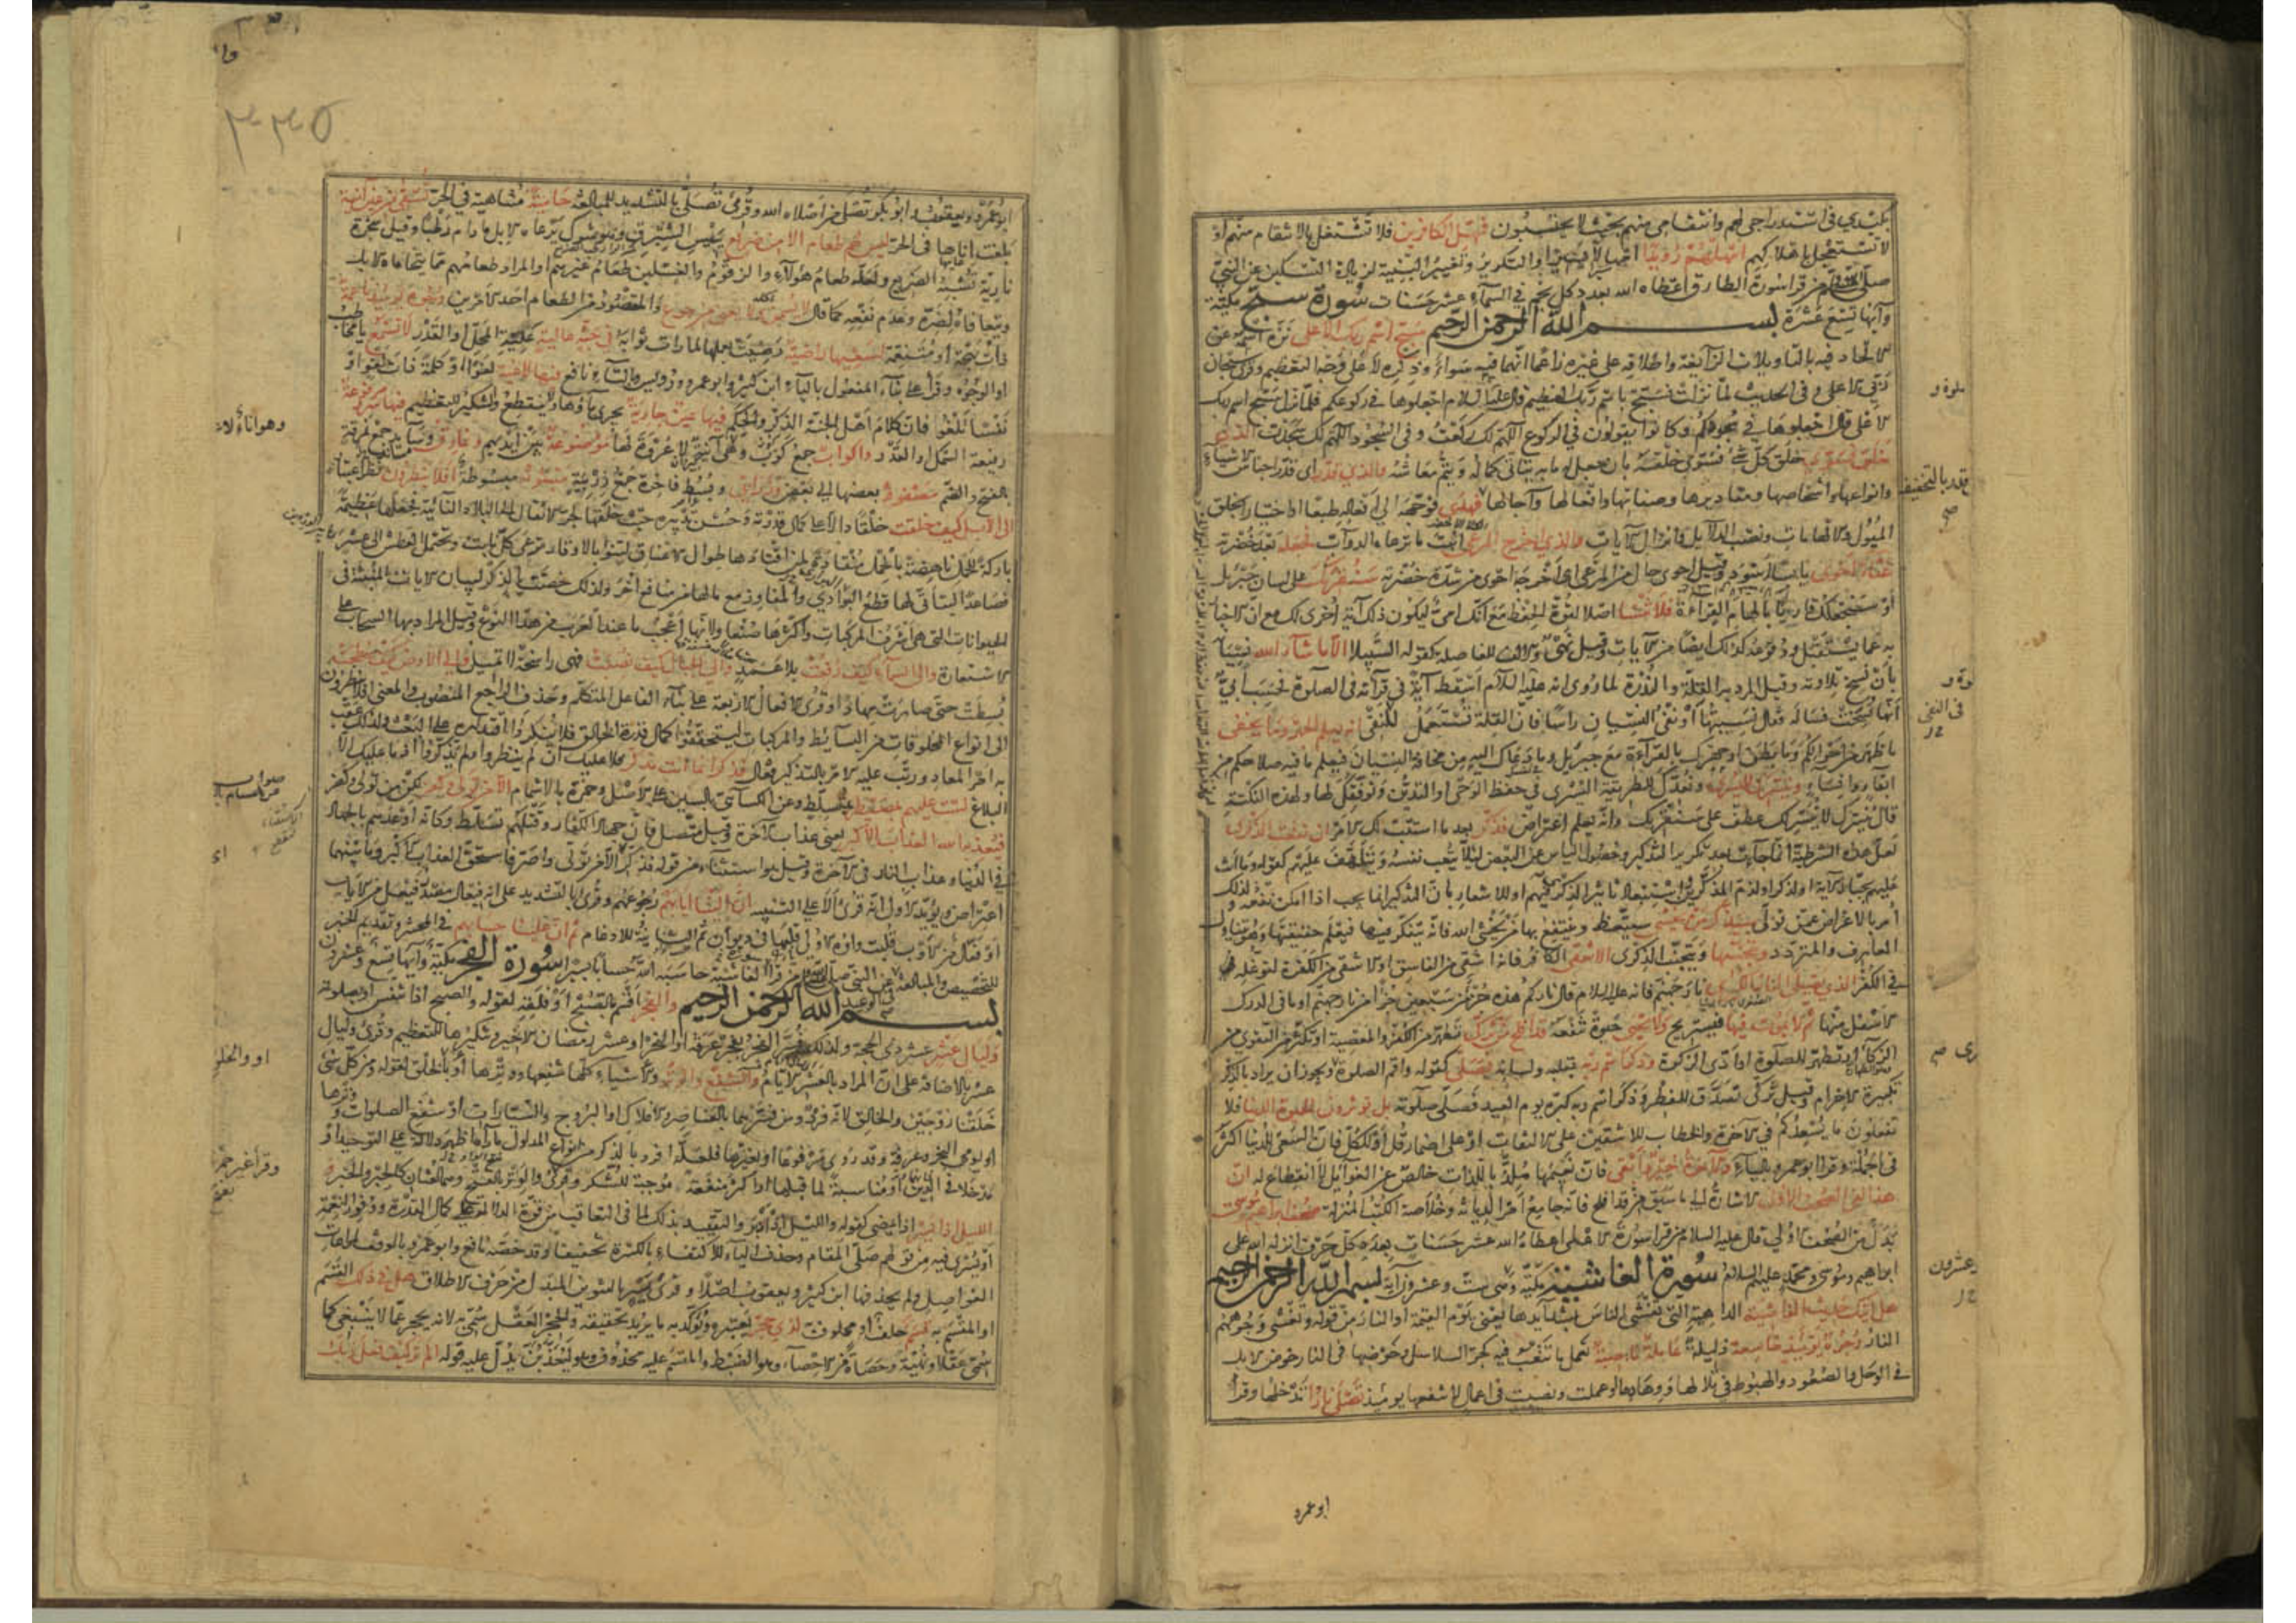 بكيدي في استدراجي لهم وانتقامي منهم بحيث لا يحتسبون فمهل الكافرين فلا تشتغل بالانتقام منهم او
لا تستعجل باهلاكهم امهلهم رويدا امهالا يسيرا والتكرير وتغيير البنية لزيادة التسكين عن النبي
صلى الله عليه وسلم من قرا سورة الطارق اعطاه الله بعدد كل نجم في السماء عشر حسنات سورة سبح مكية
وآيها تسع عشرة بسم الله الرحمن الرحيم سبح اسم ربك الاعلى نزه اسمه عن
الالحاد فيه بالتاويلات الزائغة واطلاقه على غيره زاعما انهما فيه سواء وذكره لا على وجه التعظيم وقرئ سبحان
ربي الاعلى وفي الحديث لما نزلت فسبح باسم ربك العظيم قال عليه السلام اجعلوها في ركوعكم فلما نزل سبح اسم ربك
الاعلى قال اجعلوها في سجودكم وكانوا يقولون في الركوع اللهم لك ركعت وفي السجود اللهم لك سجدت الذي
خلق فسوى خلق كل شيء فسوى خلقه بان جعل له ما به يتاتى كماله ويتم معاشه والذي قدر اي قدر اجناس الاشياء
وانواعها واشخاصها ومقاديرها وصفاتها وافعالها وآجالها فهدى فوجهه الى افعاله طبعا او اختيارا بخلق
الميول والالهامات ونصب الدلايل وانزال الآيات والذي اخرج المرعى انبت ما ترعاه الدواب فجعله بعد خضرته
غثاء احوى يابسا اسود وقيل احوى حال من المرعى اي اخرجه احوى من شدة خضرته سنقرئك على لسان جبريل
او سنجعلك قاريا بالهام القراءة فلا تنسى اصلا لقوة الحفظ مع انك امي ليكون ذلك آية اخرى لك مع ان الاخبار
به عما يستقبل ووقوعه كذلك ايضا من الآيات وقيل نهي والالف للفاصلة كقوله السبيلا الا ما شاء الله نسيانه
بان نسخ تلاوته وقيل المراد به القلة والندرة لما روي انه عليه السلام اسقط آية في قرآته في الصلوة فحسب ابي
انها نسخت فساله فقال نسيتها او نفي النسيان راسا فان القلة تستعمل للنفي انه يعلم الجهر وما يخفى
ما ظهر من احوالكم وما بطن او جهرك بالقراءة مع جبريل وما دعاك اليه من مخافة النسيان فيعلم ما فيه صلاحكم من
ابقاء وانساء ونيسرك لليسرى ونعدك للطريقة اليسرى في حفظ الوحي او التدين ونوفقك لها ولهذه النكتة
قال نيسرك لا نيسر لك عطف على سنقرئك وانه يعلم اعتراض فذكر بعد ما استتب لك الامر ان نفعت الذكرى
لعل هذه الشرطية انما جاءت بعد تكرير التذكير وحصول الياس عن البعض لئلا يتعب نفسه ويتلهف عليهم كقوله وما انت
عليهم بجبار الآية او لذم المذكرين واستبعاد تاثير الذكرى فيهم او للاشعار بان التذكير انما يجب اذا امكن نفعه ولذلك
امر بالاعراض عمن تولى سيذكر من يخشى سيتعظ وينتفع بها من يخشى الله فانه يتفكر فيها فيعلم حقيقتها وهو يتناول
العارف والمتردد ويتجنبها ويتجنب الذكرى الاشقى الكافر فانه اشقى من الفاسق او الاشقى من الكفرة لتوغله
في الكفر الذي يصلى النار الكبرى نار جهنم فانه عليه السلام قال ناركم هذه جزء من سبعين جزءا من نار جهنم او ما في الدرك
الاسفل منها ثم لا يموت فيها فيستريح ولا يحيى حيوة تنفعه قد افلح من تزكى تطهر من الكفر والمعصية او تكثر من التقوى من
الزكاء او تطهر للصلوة او ادى الزكوة وذكر اسم ربه بقلبه ولسانه فصلى كقوله واقم الصلوة ويجوز ان يراد بالذكر
تكبيرة الاحرام وقيل تزكى تصدق للفطر وذكر اسم ربه كبره يوم العيد فصلى صلوته بل توثرون الحيوة الدنيا فلا
تفعلون ما يسعدكم في الآخرة والخطاب للاشقين على الالتفات او على اضمار قل او للكل فان السعي للدنيا اكثر
في الجملة وقرا ابو عمرو بالياء والآخرة خير وابقى فان نعيمها ملذ بالذات خالص عن الغوائل لا انقطاع له ان
هذا لفي الصحف الاولى الاشارة الى ما سبق من قد افلح فانه جامع امر الديانة وخلاصة الكتب المنزلة صحف ابراهيم وموسى
بدل من الصحف الاولى قال عليه السلام من قرا سورة الاعلى اعطاه الله عشر حسنات بعدد كل حرف انزله الله على
ابراهيم وموسى ومحمد عليهم السلام سورة الغاشية مكية وهي ست وعشرون آية بسم الله الرحمن الرحيم
هل اتيك حديث الغاشية الداهية التي تغشى الناس بشدايدها يعني يوم القيمة او النار من قوله وتغشى وجوههم
النار وجوه يومئذ خاشعة ذليلة عاملة ناصبة تعمل ما تتعب فيه كجر السلاسل وخوضها في النار خوض الابل
في الوحل والصعود والهبوط في تلالها ووهادها او عملت ونصبت في اعمال لا تنفعها يومئذ تصلى نارا تدخلها وقرأ
ابو عمرو
ابو عمرو ويعقوب وابو بكر تصلى من اصلاه الله وقرئ تصلى بالتشديد للمبالغة حامية متناهية في الحر تسقى من عين آنية
بلغت اناها في الحر ليس لهم طعام الا من ضريع يبيس الشبرق وهو شوك ترعاه الابل ما دام رطبا وقيل شجرة
نارية تشبه الضريع ولعله طعام هؤلاء والزقوم والغسلين طعام غيرهم او المراد طعامهم مما يتحاماه الابل
ويتعافاه لضره وعدم نفعه كما قال لا يسمن ولا يغني من جوع والمقصود من الطعام احد الامرين وجوه يومئذ ناعمة
ذات بهجة او متنعمة لسعيها راضية رضيت بعملها لما رات ثوابه في جنة عالية علية المحل او القدر لا تسمع يا مخاطب
او الوجوه وقرا على بناء المفعول بالياء ابن كثير وابو عمرو ورويس وبالتاء نافع فيها لاغية لغوا او كلمة ذات لغو او
نفسا تلغو فان كلام اهل الجنة الذكر والحكم فيها عين جارية يجري ماؤها ولا ينقطع والتنكير للتعظيم فيها سرر مرفوعة
رفيعة السمك او القدر واكواب جمع كوب وهي آنية لا عروة لها موضوعة بين ايديهم ونمارق وسائد جمع نمرقة
بالفتح والضم مصفوفة بعضها الى بعض وزرابي وبسط فاخرة جمع زربية مبثوثة مبسوطة افلا ينظرون نظر اعتبار
الى الابل كيف خلقت خلقا دالا على كمال قدرته وحسن تدبيره حيث خلقها لجر الاثقال الى البلاد النائية فجعلها عظيمة
باركة للحمل ناهضة بالحمل منقادة لمن اقتادها طوال الاعناق لتنوء بالاوقار ترعى كل نابت وتحتمل العطش الى عشر
فصاعدا ليتاتى لها قطع البوادي والمفاوز مع ما لها من منافع اخر ولذلك خصت بالذكر لبيان الآيات المنبثة في
الحيوانات التي هي اشرف المركبات واكثرها صنعا ولانها اعجب ما عند العرب من هذا النوع وقيل المراد بها السحاب على
الاستعارة والى السماء كيف رفعت بلا عمد والى الجبال كيف نصبت فهي راسخة لا تميل والى الارض كيف سطحت
بسطت حتى صارت مهادا وقرئ الافعال الاربعة على بناء الفاعل المتكلم وحذف الراجع المنصوب والمعنى افلا ينظرون
الى انواع المخلوقات من البسائط والمركبات ليتحققوا كمال قدرة الخالق فلا ينكروا اقتداره على البعث ولذلك عقب
به امر المعاد ورتب عليه الامر بالتذكير فقال فذكر انما انت مذكر فلا عليك ان لم ينظروا ولم يذكروا اذ ما عليك الا
البلاغ لست عليهم بمصيطر بمتسلط وعن الكسائي بالسين على الاصل وحمزة بالاشمام الا من تولى وكفر لكن من تولى وكفر
فيعذبه الله العذاب الاكبر يعني عذاب الآخرة وقيل متصل فان جهاد الكفار وقتلهم تسلط وكانه اوعدهم بالجهاد
في الدنيا وعذاب النار في الآخرة وقيل هو استثناء من قوله فذكر اي فذكر الا من تولى واصر فاستحق العذاب الاكبر وما بينهما
اعتراض ويؤيد الاول انه قرئ الا على التنبيه ان الينا ايابهم رجوعهم وقرئ بالتشديد على انه فيعال مصدر فيعل من الاياب
او فعال من الاوب قلبت واوه الاولى قلبها في ديوان ثم الثانية للادغام ثم ان علينا حسابهم في المحشر وتقديم الخبر
للتخصيص والمبالغة في الوعيد عن النبي صلى الله عليه وسلم من قرا الغاشية حاسبه الله حسابا يسيرا سورة الفجر مكية وآيها تسع وعشرون
بسم الله الرحمن الرحيم والفجر اقسم بالصبح او فلقه لقوله والصبح اذا تنفس او بصلوته
وليال عشر عشر ذي الحجة ولذلك فسر الفجر بفجر عرفة او النحر او عشر رمضان الاخير وتنكيرها للتعظيم وقرئ وليال
عشر بالاضافة على ان المراد بالعشر الايام والشفع والوتر والاشياء كلها شفعها ووترها او بالخلق لقوله ومن كل شيء
خلقنا زوجين والخالق لانه فرد ومن فسرهما بالعناصر والافلاك او البروج والسيارات او شفع الصلوات ووترها
او يومي النحر وعرفة وقد روي مرفوعا او بغيرها فلعله افرد بالذكر من انواع المدلول ما رآه اظهر دلالة على التوحيد او
مدخلا في الدين او مناسبة لما قبلهما او اكثر منفعة موجبة للشكر وقرئ والوتر بالفتح وهما لغتان كالحبر والحبر و
الليل اذا يسر اذا يمضي كقوله والليل اذ ادبر والتقييد بذلك لما في التعاقب من قوة الدلالة على كمال القدرة ووفور النعمة
او يسرى فيه من قولهم صلى المقام وحذف الياء للاكتفاء بالكسرة تخفيفا وقد خصه نافع وابو عمرو بالوقف لمراعات
الفواصل ولم يحذفها ابن كثير ويعقوب اصلا وقرئ يسر بالتنوين المبدل من حرف الاطلاق هل في ذلك القسم
او المقسم به قسم حلف او محلوف لذي حجر يعتبره ويؤكد به ما يريد تحقيقه والحجر العقل سمي به لانه يحجر عما لا ينبغي كما
سمي عقلا ونهية وحصاة من الاحصاء وهو الضبط والمقسم عليه محذوف وهو ليعذبن يدل عليه قوله الم تر كيف فعل ربك